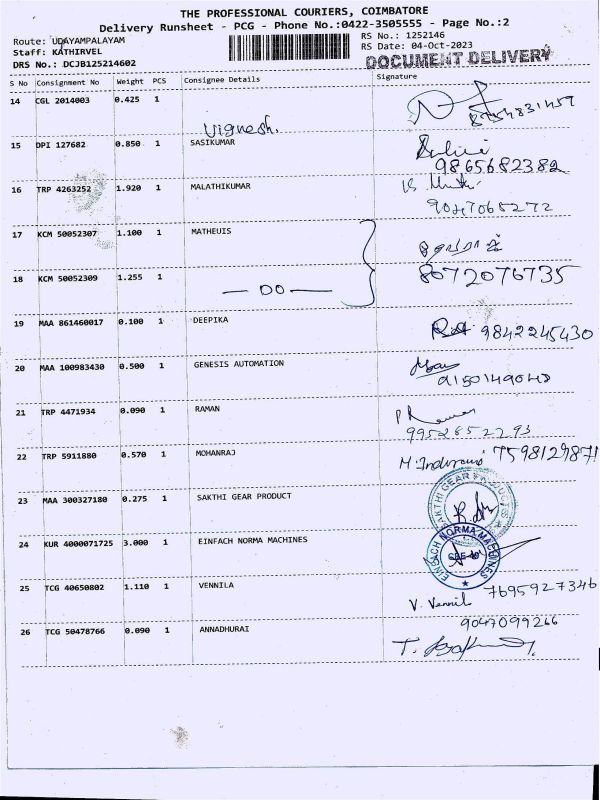 THE PROFESSIONAL COURIERS, COIMBATORE
Delivery Runsheet - PCG - Phone No.:0422-3505555 - Page No.:2
Route: UDAYAMPALAYAM RS No.: 1252146
Staff: KATHIRVEL RS Date: 04-Oct-2023
DRS No.: DCJB125214602 DOCUMENT DELIVERY
S No Consignment No Weight PCS Consignee Details Signature
14 CGL 2014003 0.425 1
Vignesh.
15 DPI 127682 0.850 1 SASIKUMAR
9865682382
16 TRP 4263252 1.920 1 MALATHIKUMAR
9047068272
17 KCM 50052307 1.100 1 MATHEUIS
18 KCM 50052309 1.255 1 8072076735
— DO —
19 MAA 861460017 0.100 1 DEEPIKA
9842245430
20 MAA 100983430 0.500 1 GENESIS AUTOMATION
21 TRP 4471934 0.090 1 RAMAN
22 TRP 5911880 0.570 1 MOHANRAJ
7598129871
23 MAA 300327180 0.275 1 SAKTHI GEAR PRODUCT
SAKTHI GEAR PRODUCTS
24 KUR 4000071725 3.000 1 EINFACH NORMA MACHINES
EINFACH NORMA MACHINES
25 TCG 40650802 1.110 1 VENNILA
V. Vennil 7695927346
26 TCG 50478766 0.090 1 ANNADHURAI 9047099266